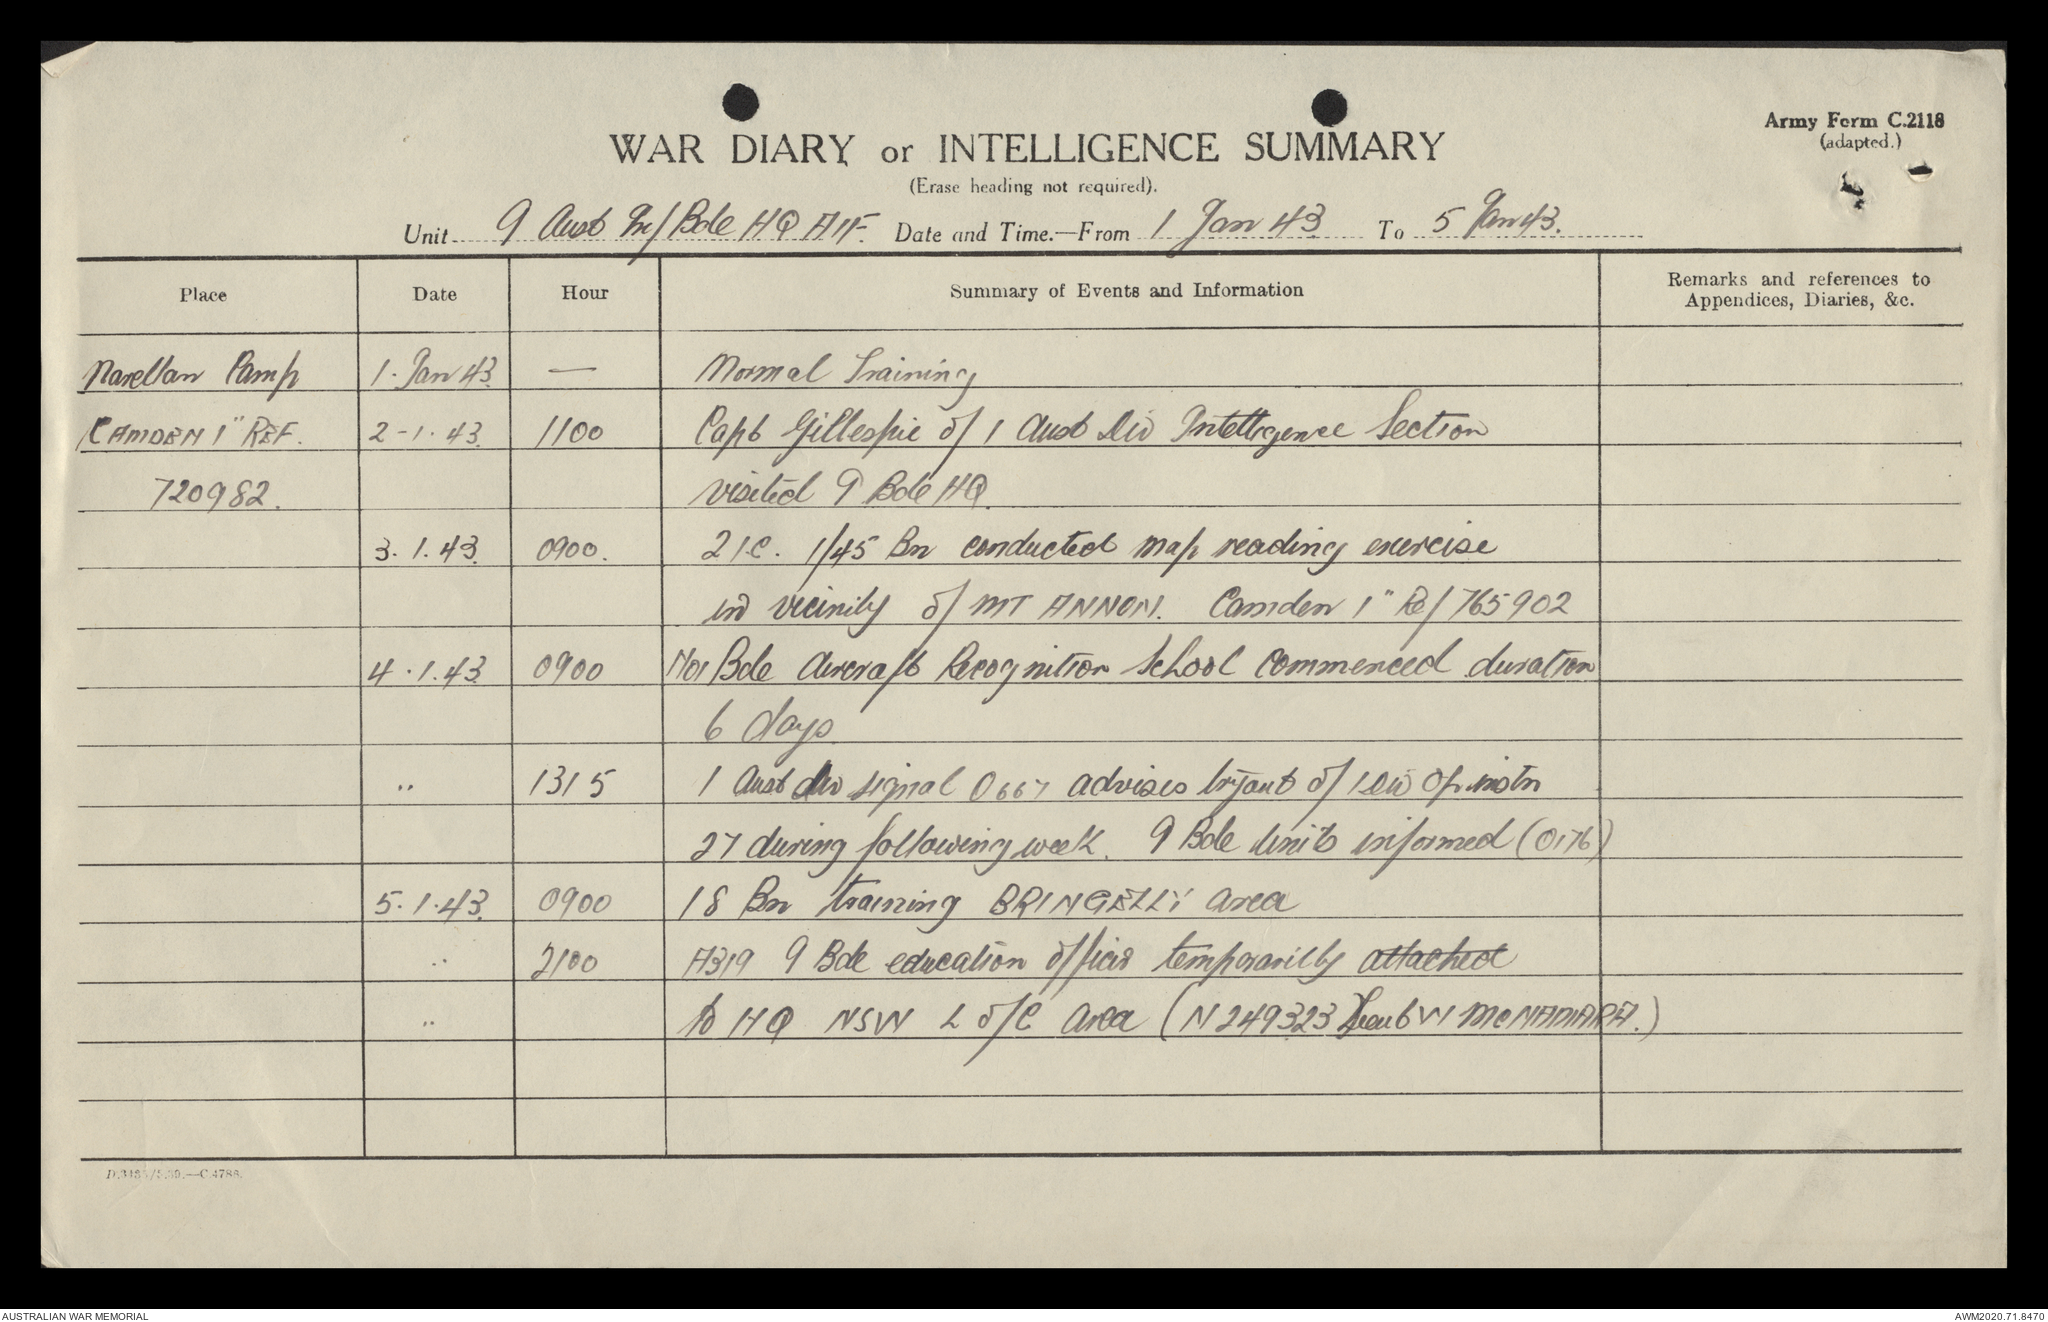 Army Form C.2118
(adapted.)
WAR DIARY or INTELLIGENCE SUMMARY
(Erase heading not required).
Unit 9 Aust Inf Bde HQ AIF. Date and Time.—From 1 Jan 43 To 5 Jan 43.
Place Date Hour Summary of Events and Information Remarks and references to
Appendices, Diaries, &c.
Narellan Camp 1. Jan 43. — Normal Training
CAMDEN 1" REF. 2-1.43. 1100 Capt Gillespie of 1 Aust Div Intelligence Section
720982. visited 9 Bde HQ.
3.1.43. 0900. 2 I.C. 1/45 Bn conducted map reading exercise
in vicinity of MT ANNON. Camden 1" Ref 765902
4.1.43. 0900 No1 Bde Aircraft Recognition School commenced duration
6 days
" 1315 1 Aust Div signal O667 advises of 1 Div Op instn
27 during following week. 9 Bde units informed (O176)
5.1.43. 0900 18 Bn training BRINGELLY area
" 2100 A319 9 Bde education officer temporarily attached
" to HQ NSW L of C area (N249323 Lieut W McNAMARA.)
D.3483/5.39.—C.4786.
AUSTRALIAN WAR MEMORIAL AWM2020.71.8470